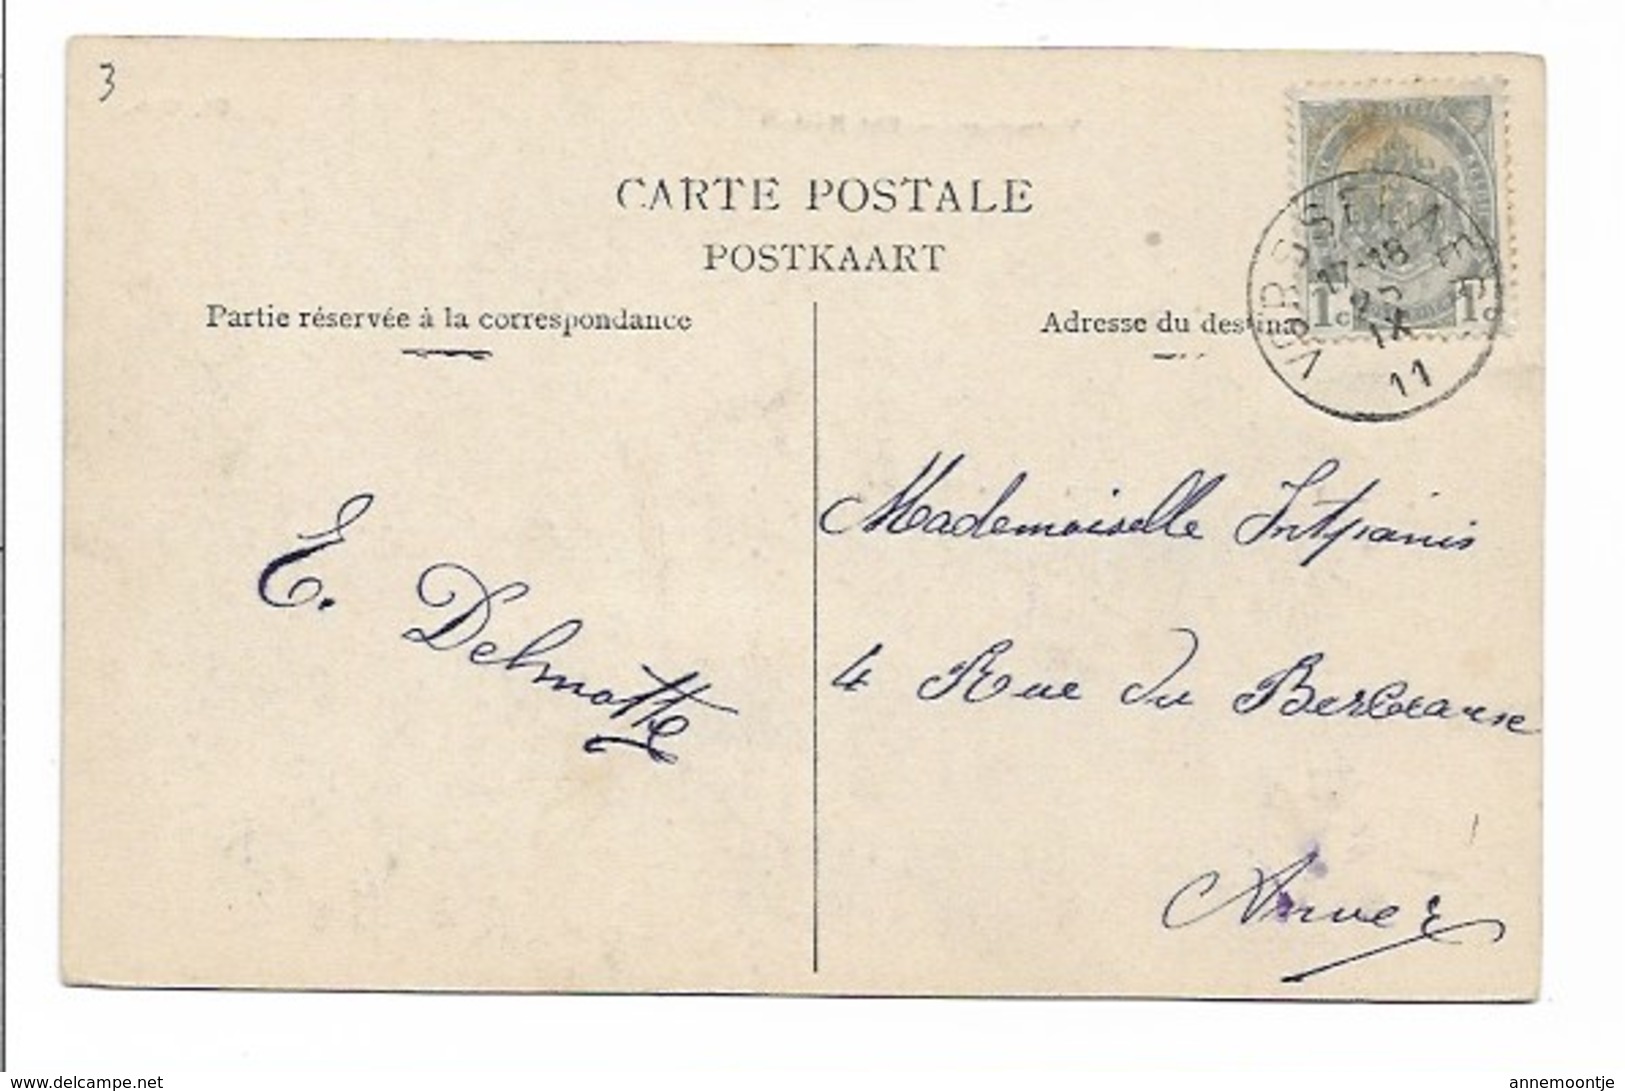 3
CARTE POSTALE
POSTKAART
Partie réservée à la correspondance
Adresse du destina
VORSSELAER
17-18
25
IX
11
1c 1c
Mademoiselle Intpanis
E. Delmotte
4 Rue du
Anvers
www.delcampe.net
annemoontje